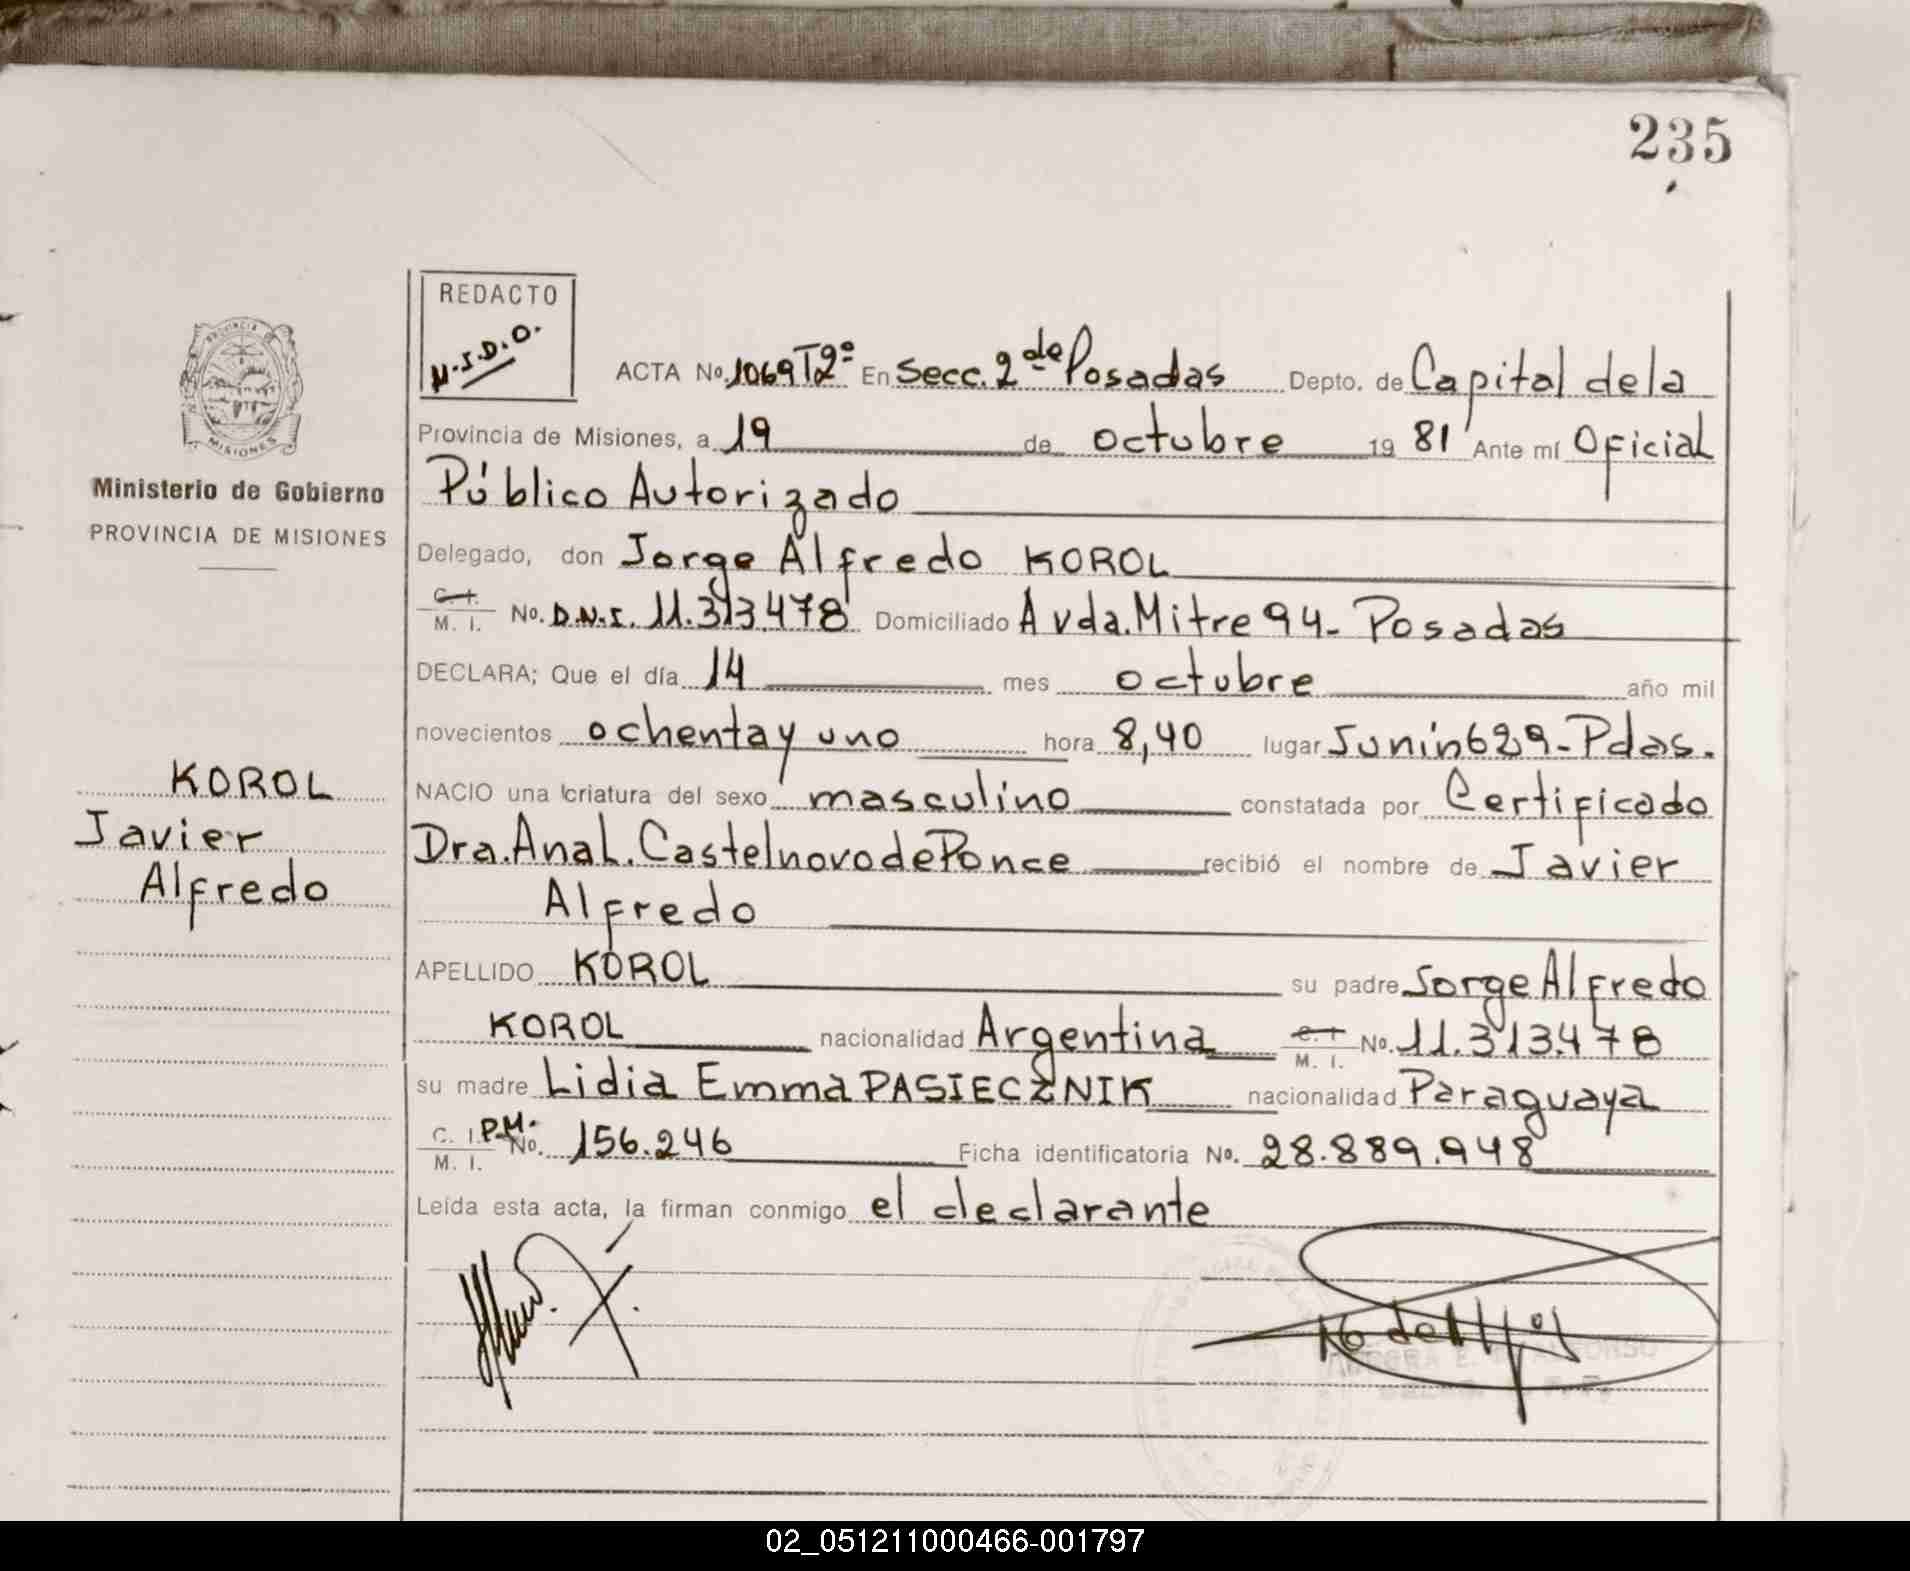 235
REDACTO
N.I.D.O.
ACTA No. 1069 Tº2º En Secc. 2de Posadas Depto. de Capital de la
Provincia de Misiones, a 19 de octubre 1981 Ante mí Oficial
Público Autorizado
Delegado, don Jorge Alfredo KOROL
C. I. M. I. No. D.N.I. 11.313.478 Domiciliado Avda. Mitre 94- Posadas
DECLARA; Que el día 14 mes octubre año mil
novecientos ochenta y uno hora 8,40 lugar Junín 629- Pdas.
NACIO una criatura del sexo masculino constatada por Certificado
Dra. Ana L. Castelnovo de Ponce recibió el nombre de Javier
Alfredo
APELLIDO KOROL su padre Jorge Alfredo
KOROL nacionalidad Argentina C. I. M. I. No. 11.313.478
su madre Lidia Emma PASIECZNIK nacionalidad Paraguaya
C. I. M. I. P.M. No. 156.246 Ficha identificatoria No. 28.889.948
Leída esta acta, la firman conmigo el declarante
PROVINCIA DE
MISIONES
Ministerio de Gobierno
PROVINCIA DE MISIONES
KOROL
Javier
Alfredo
02_051211000466-001797